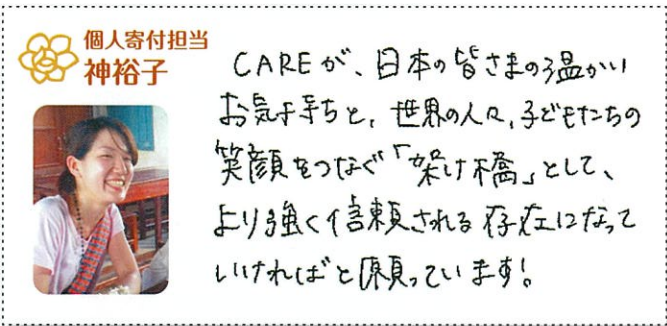 個人寄付担当
神裕子
CAREが、日本の皆さまの温かい
お気持ちと、世界の人々、子どもたちの
笑顔をつなぐ「架け橋」として、
より強く信頼される存在になって
いければと願っています!